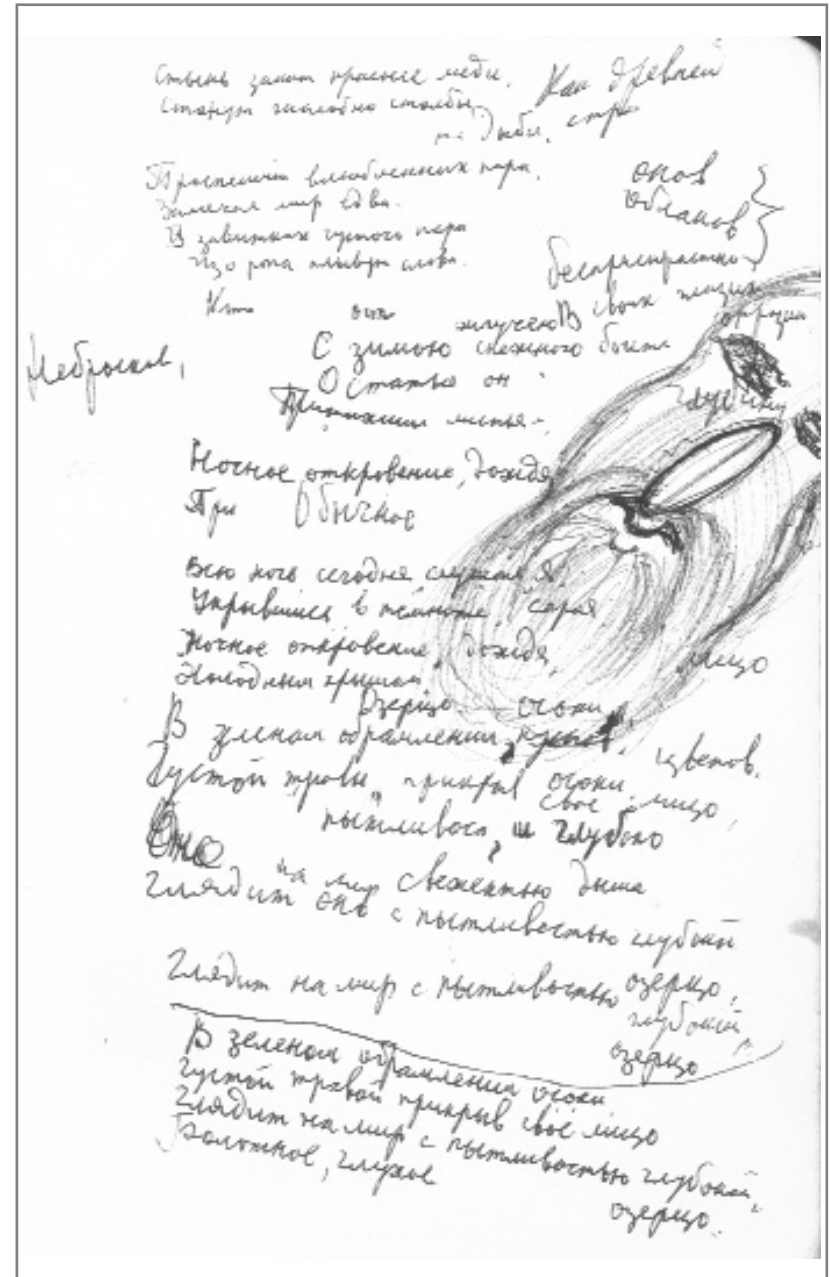 Стынь залит красные меди. Как древней
Стонут жалобно столбы
на дыбы,
Проспешит влюбленных пара,
Замечая мир едва.
В завитках густого пара
Изо рта плывут слова.
снов
облаков
беспристрастно
В своих глазах
С зимою снежного
Остатье он
листья
глубину
Ночное откровение дождя
При Обычное
Всю ночь сегодня слушал я,
Укрывшись в темноте сарая
Ночное откровение дождя,
Холодным крышам
лицо
Озерцо осоки
В зеленом обрамлении цветов.
Густой травы прикрыв осоки свое лицо,
пытливого, и глубоко
Оно на мир свежестью дыша
Глядит оно с пытливостью глубокой
Глядит на мир с пытливостью озерцо,
глубокой
озерцо
В зеленом обрамлении осоки
Густой травой прикрыв своё лицо
Глядит на мир с пытливостью глубокой,
Болотное, глухое
озерцо.